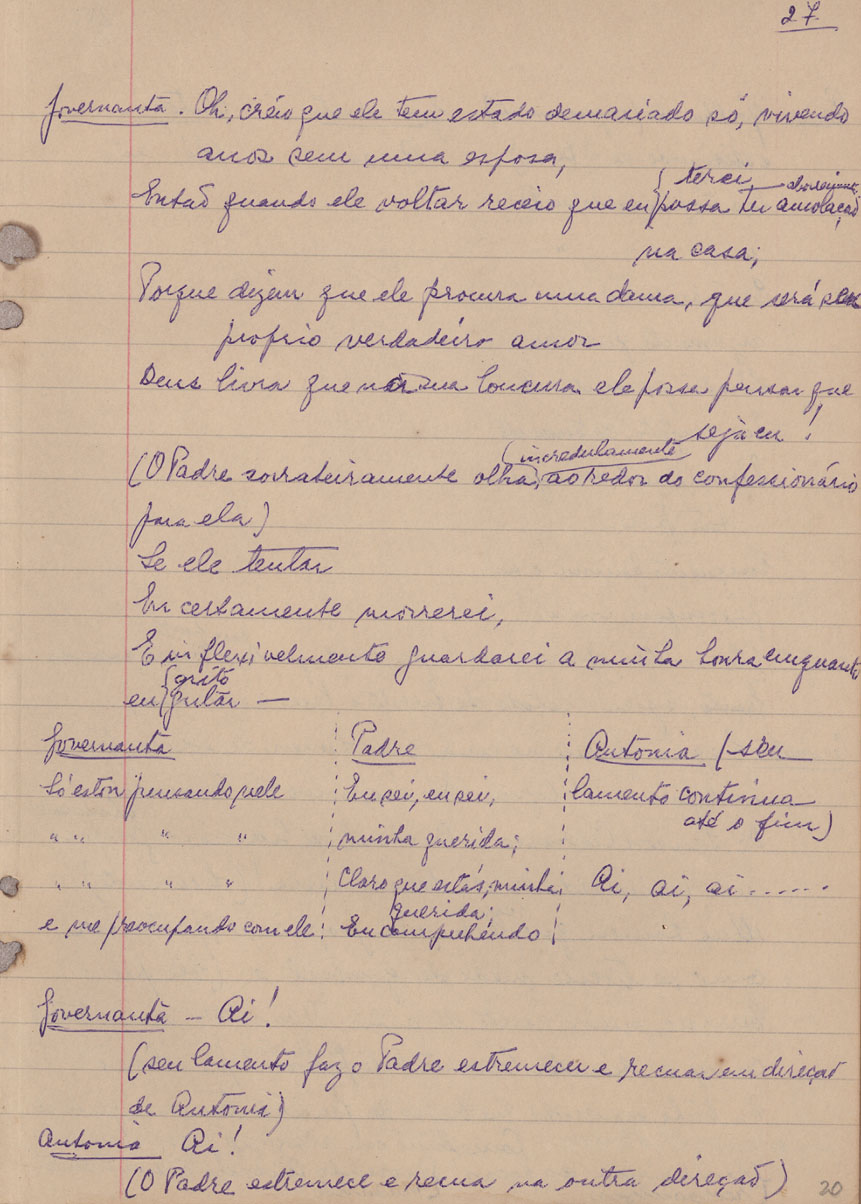 27
Governanta. Oh, creio que ele tem estado demasiado só, vivendo
anos sem uma esposa,
terei
Então quando ele voltar receio que eu possa ter amolação
na casa;
Porque dizem que ele procura uma dama, que será seu
proprio verdadeiro amor
Deus livra que na sua loucura ele possa pensar que
seja eu!
incredulamente
(O Padre sorrateiramente olha, ao redor do confessionário
para ela)
Se ele tentar
Eu certamente morrerei,
E inflexivelmente guardarei a minha honra enquanto
grito
eu gritar —
Governanta Padre Antonia (seu
Só estou pensando nele Eu sei, eu sei, lamento continua
até o fim)
" " " " minha querida;
" " " " Claro que estás, minha Ai, ai, ai ......
querida;
e me preocupando com ele Eu comprehendo
Governanta — Ai!
(seu lamento faz o Padre estremecer e recuar em direção
de Antonia)
Antonia Ai!
(O Padre estremece e recua na outra direção)
20